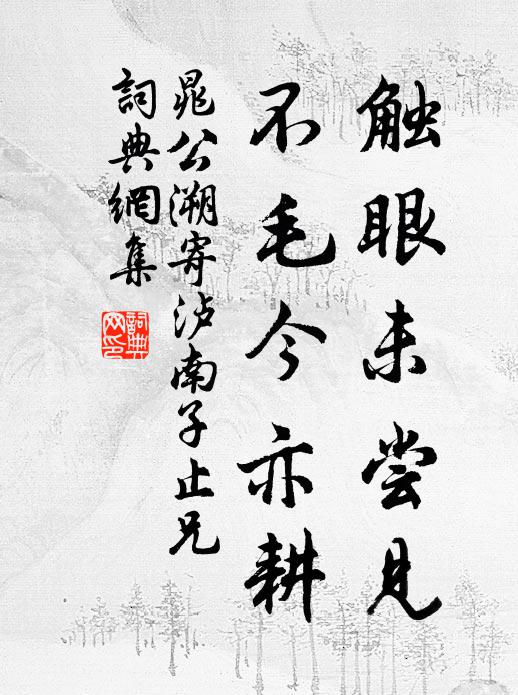 触眼未尝见
不毛今亦耕
晁公溯寄泸南子止兄
詞典網集
詞典
网印